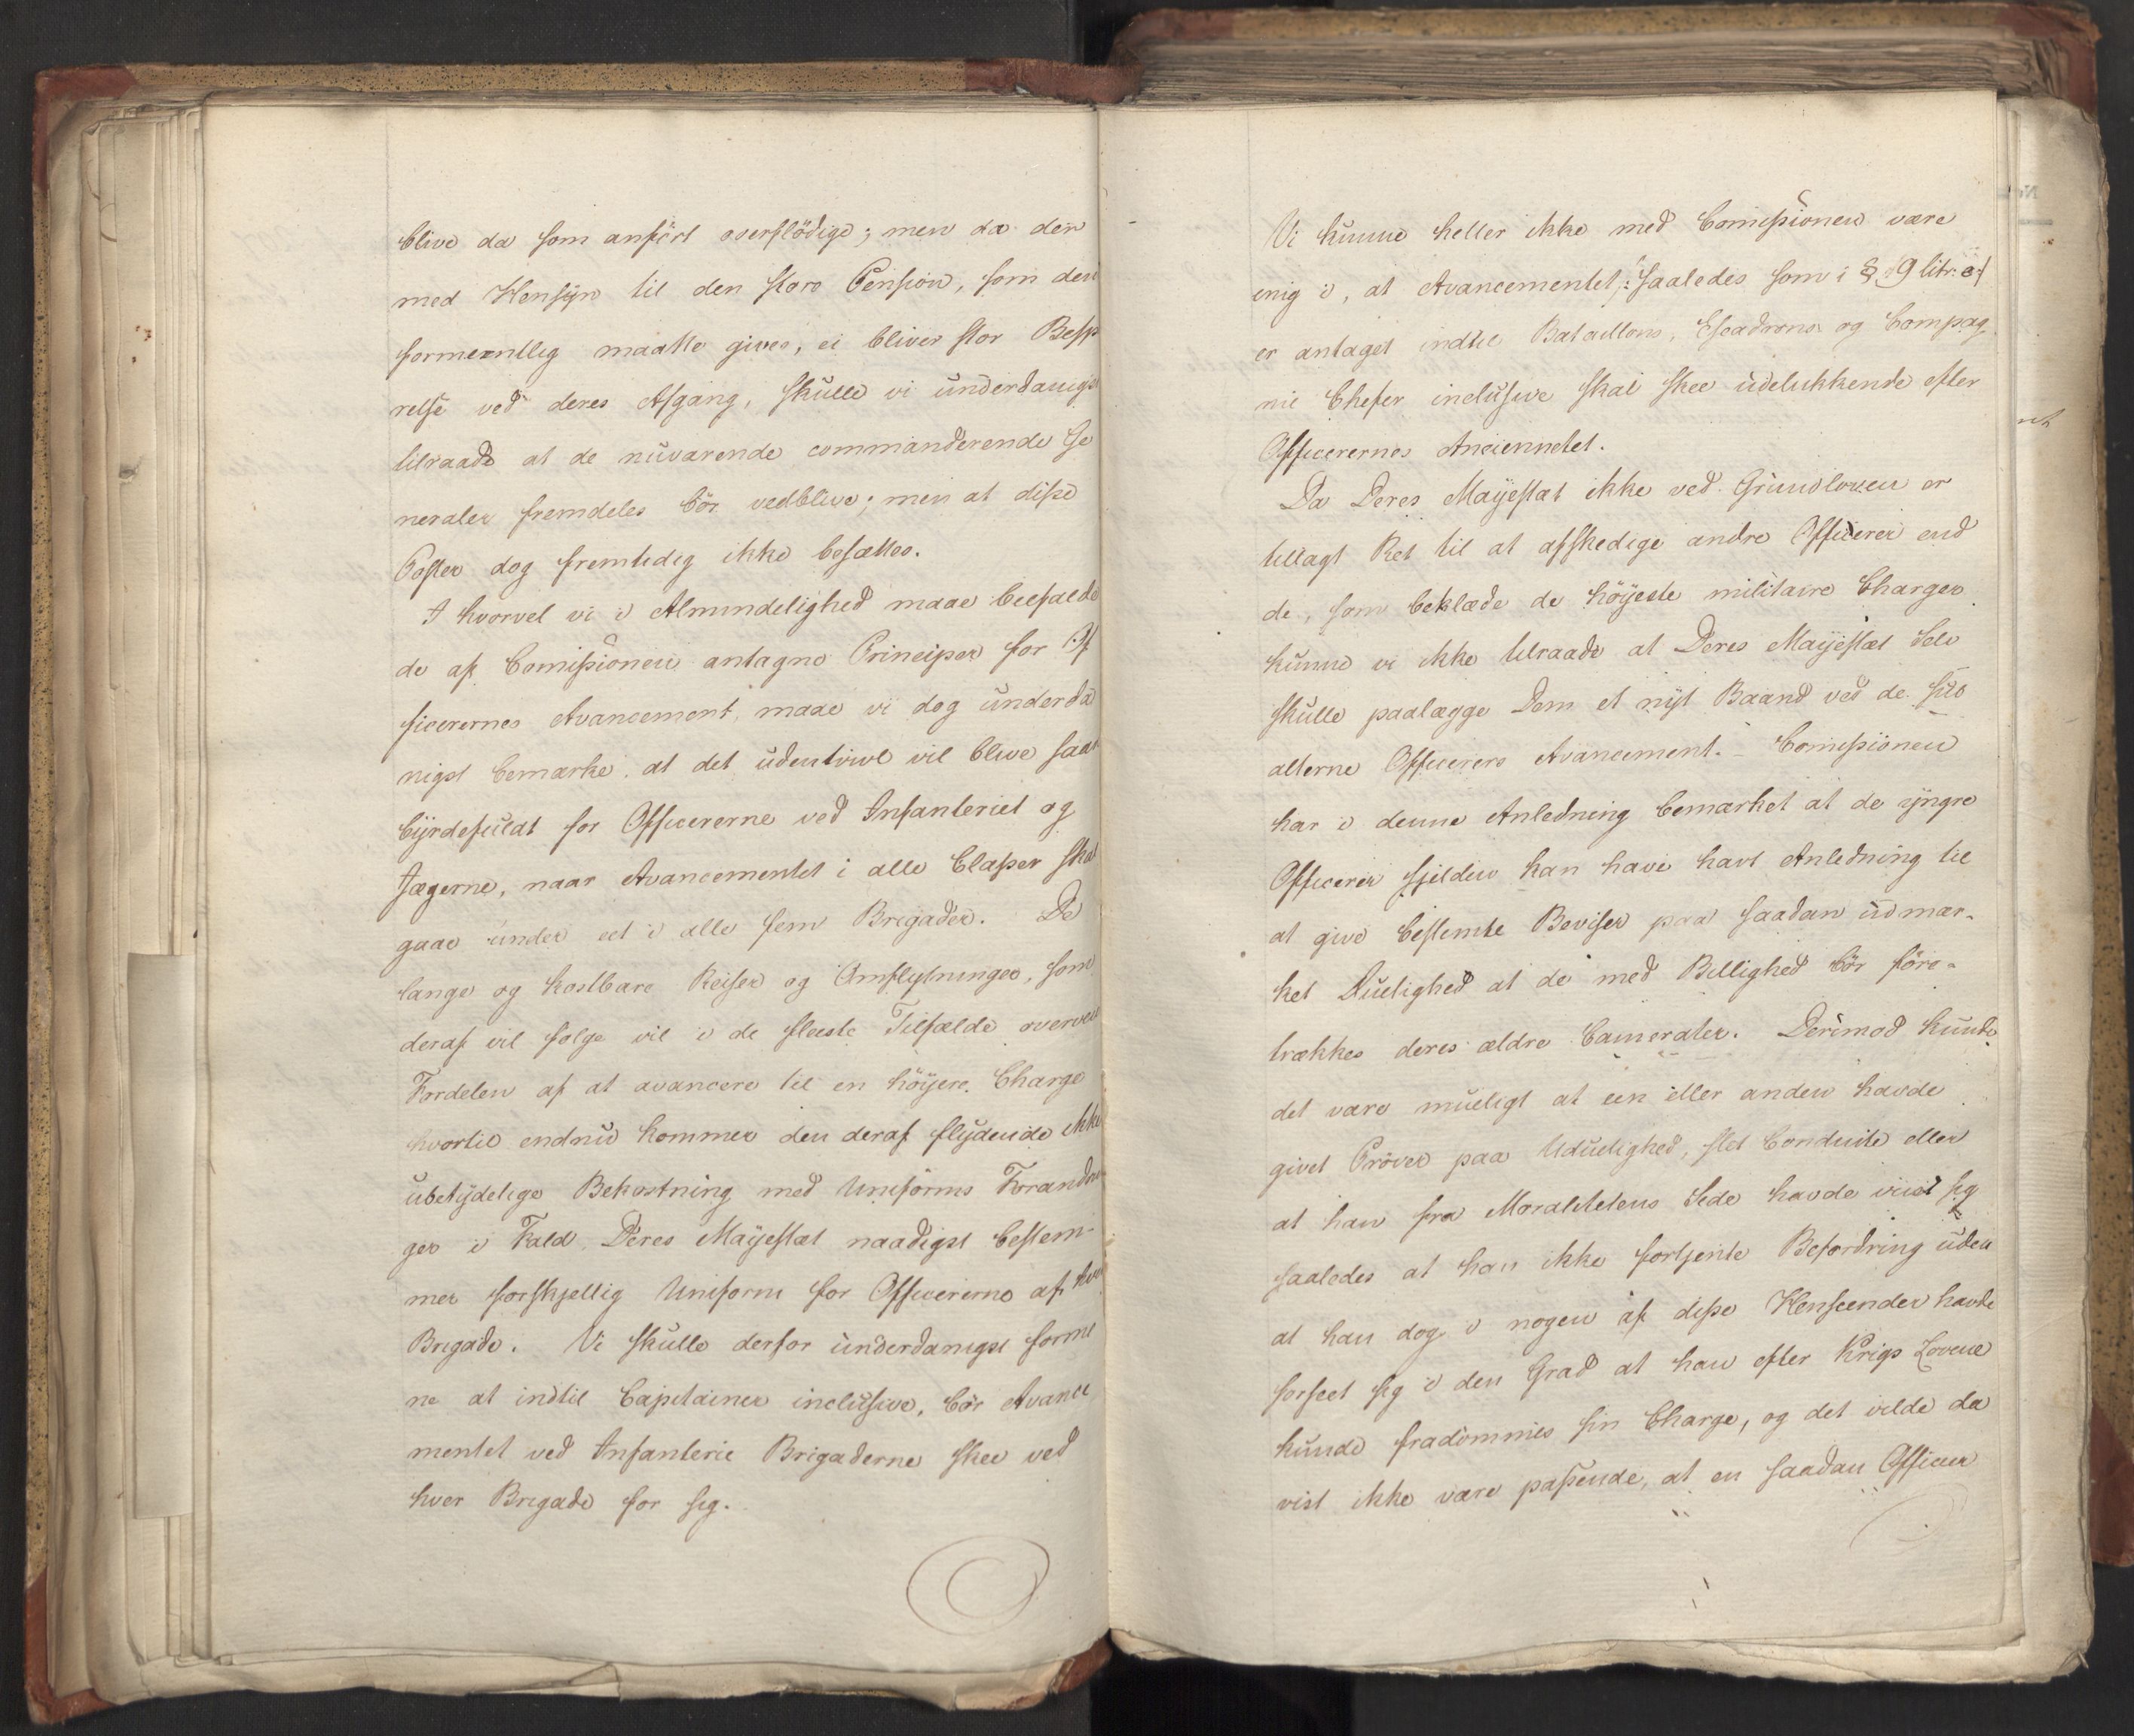 blive da som anført overflödige; men da der
med Hensÿn til den store Pension, som dem
formeentlig maatte gives, ei bliver stor Besp
relse ved deres Afgang, skulle vi underdanigst
tilraade at de nuværende commanderende Ge
neraler fremdeles bör vedblive; men at disse
Poster dog fremtidig ikke besættes.
I hvorvel vi i Almindelighed maae biefalde
de af Comissionen antagne Principer for Of
ficerernes Avancement, maae vi dog underda
nigst bemærke, at det udentvivl vil blive saa
bÿrdefuldt for Officererne ved Infanteriet og
Jægerne, naar Avancementet i alle Classer skal
gaae under eet i alle fem Brigader. De
lange og kostbare Reiser og Omflytninger, som
deraf vil følge vil i de fleeste Tilfælde overveie
Fordelen af at avancere til en höÿere Charge
hvortil endnu kommer den deraf flÿdende ikke
ubetÿdelige Bekostning med Uniforms Forandrin
ger i Fald Deres Maÿestæt naadigst bestem-
mer forskjellig Uniform for Officererne af hver
Brigade. Vi skulle derfor underdanigst forme
ne at indtil Capitainer inclusive, bör Avance
mentet ved Infanterie Brigaderne skee ved
hver Brigade for sig.
Vi kunne heller ikke med Comissionen være
enig i, at Avancementet, saaledes som i § 9 litr: e
er antaget indtil Bataillons, Escadrons og Compag
nie Chefer inclusive skal skee udelukkende efter
Officerernes Anciennetet.
Da Deres Maÿestæt ikke ved Grundloven er
tillagt Ret til at afskedige andre Officerer end
de, som beklæde de höÿeste militaire Charger
kunne vi ikke tilraade at Deres Maÿestæt Selv
skulle paalægge Dem et nÿt Baand ved de sub
alterne Officerers Avancement. Comissionen
har i denne Anledning bemærket at de ÿngre
Officerer sjelden kan have havt Anledning til
at give bestemte Beviser paa saadan udmær-
ket Duelighed at de med Billighed bör fore-
trækkes deres ældre Camerater. Derimod kunde
det være mueligt at een eller anden havde
givet Pröver paa Uduelighed, slet Conduite eller
at han fra Moralitetens Side havde viist sig
saaledes at han ikke fortjente Befordring uden
at han dog i nogen af disse Henseender havde
forseet sig i den Grad at han efter Krigs Lovene
kunde fradömmes sin Charge, og det vilde da
vist ikke være passende, at en saadan Officeer